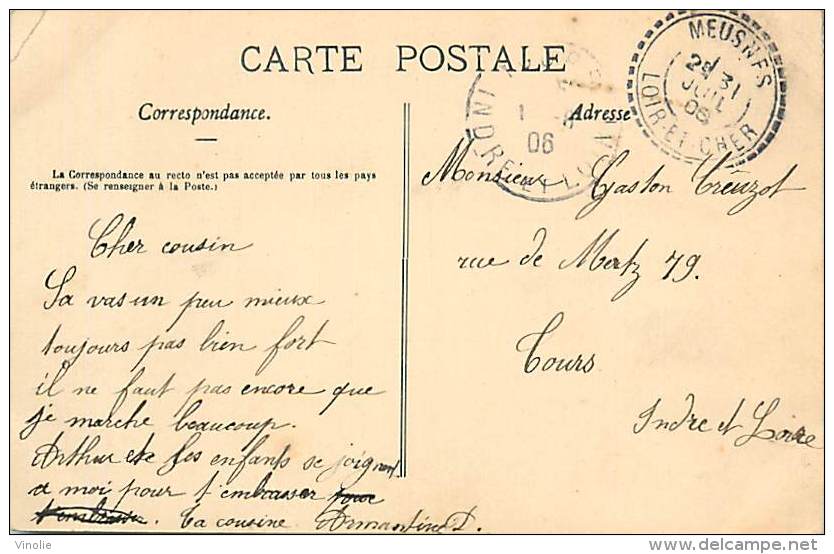 CARTE POSTALE
MEUSNES
31
JUIL
06
LOIR-ET-CHER
INDRE-ET-LOIRE
1
06
Correspondance.
Adresse
La Correspondance au recto n'est pas acceptée par tous les pays
étrangers. (Se renseigner à la Poste.)
Monsieur Gaston
rue de Metz 79.
Tours
Indre et Loire
Cher cousin
Sa vas un peu mieux
toujours pas bien fort
il ne faut pas encore que
je marche beaucoup.
Arthur et les enfants se joignent
a moi pour t'embrasser
Ta cousine Armantine D.
Vinolie
delcampe.net